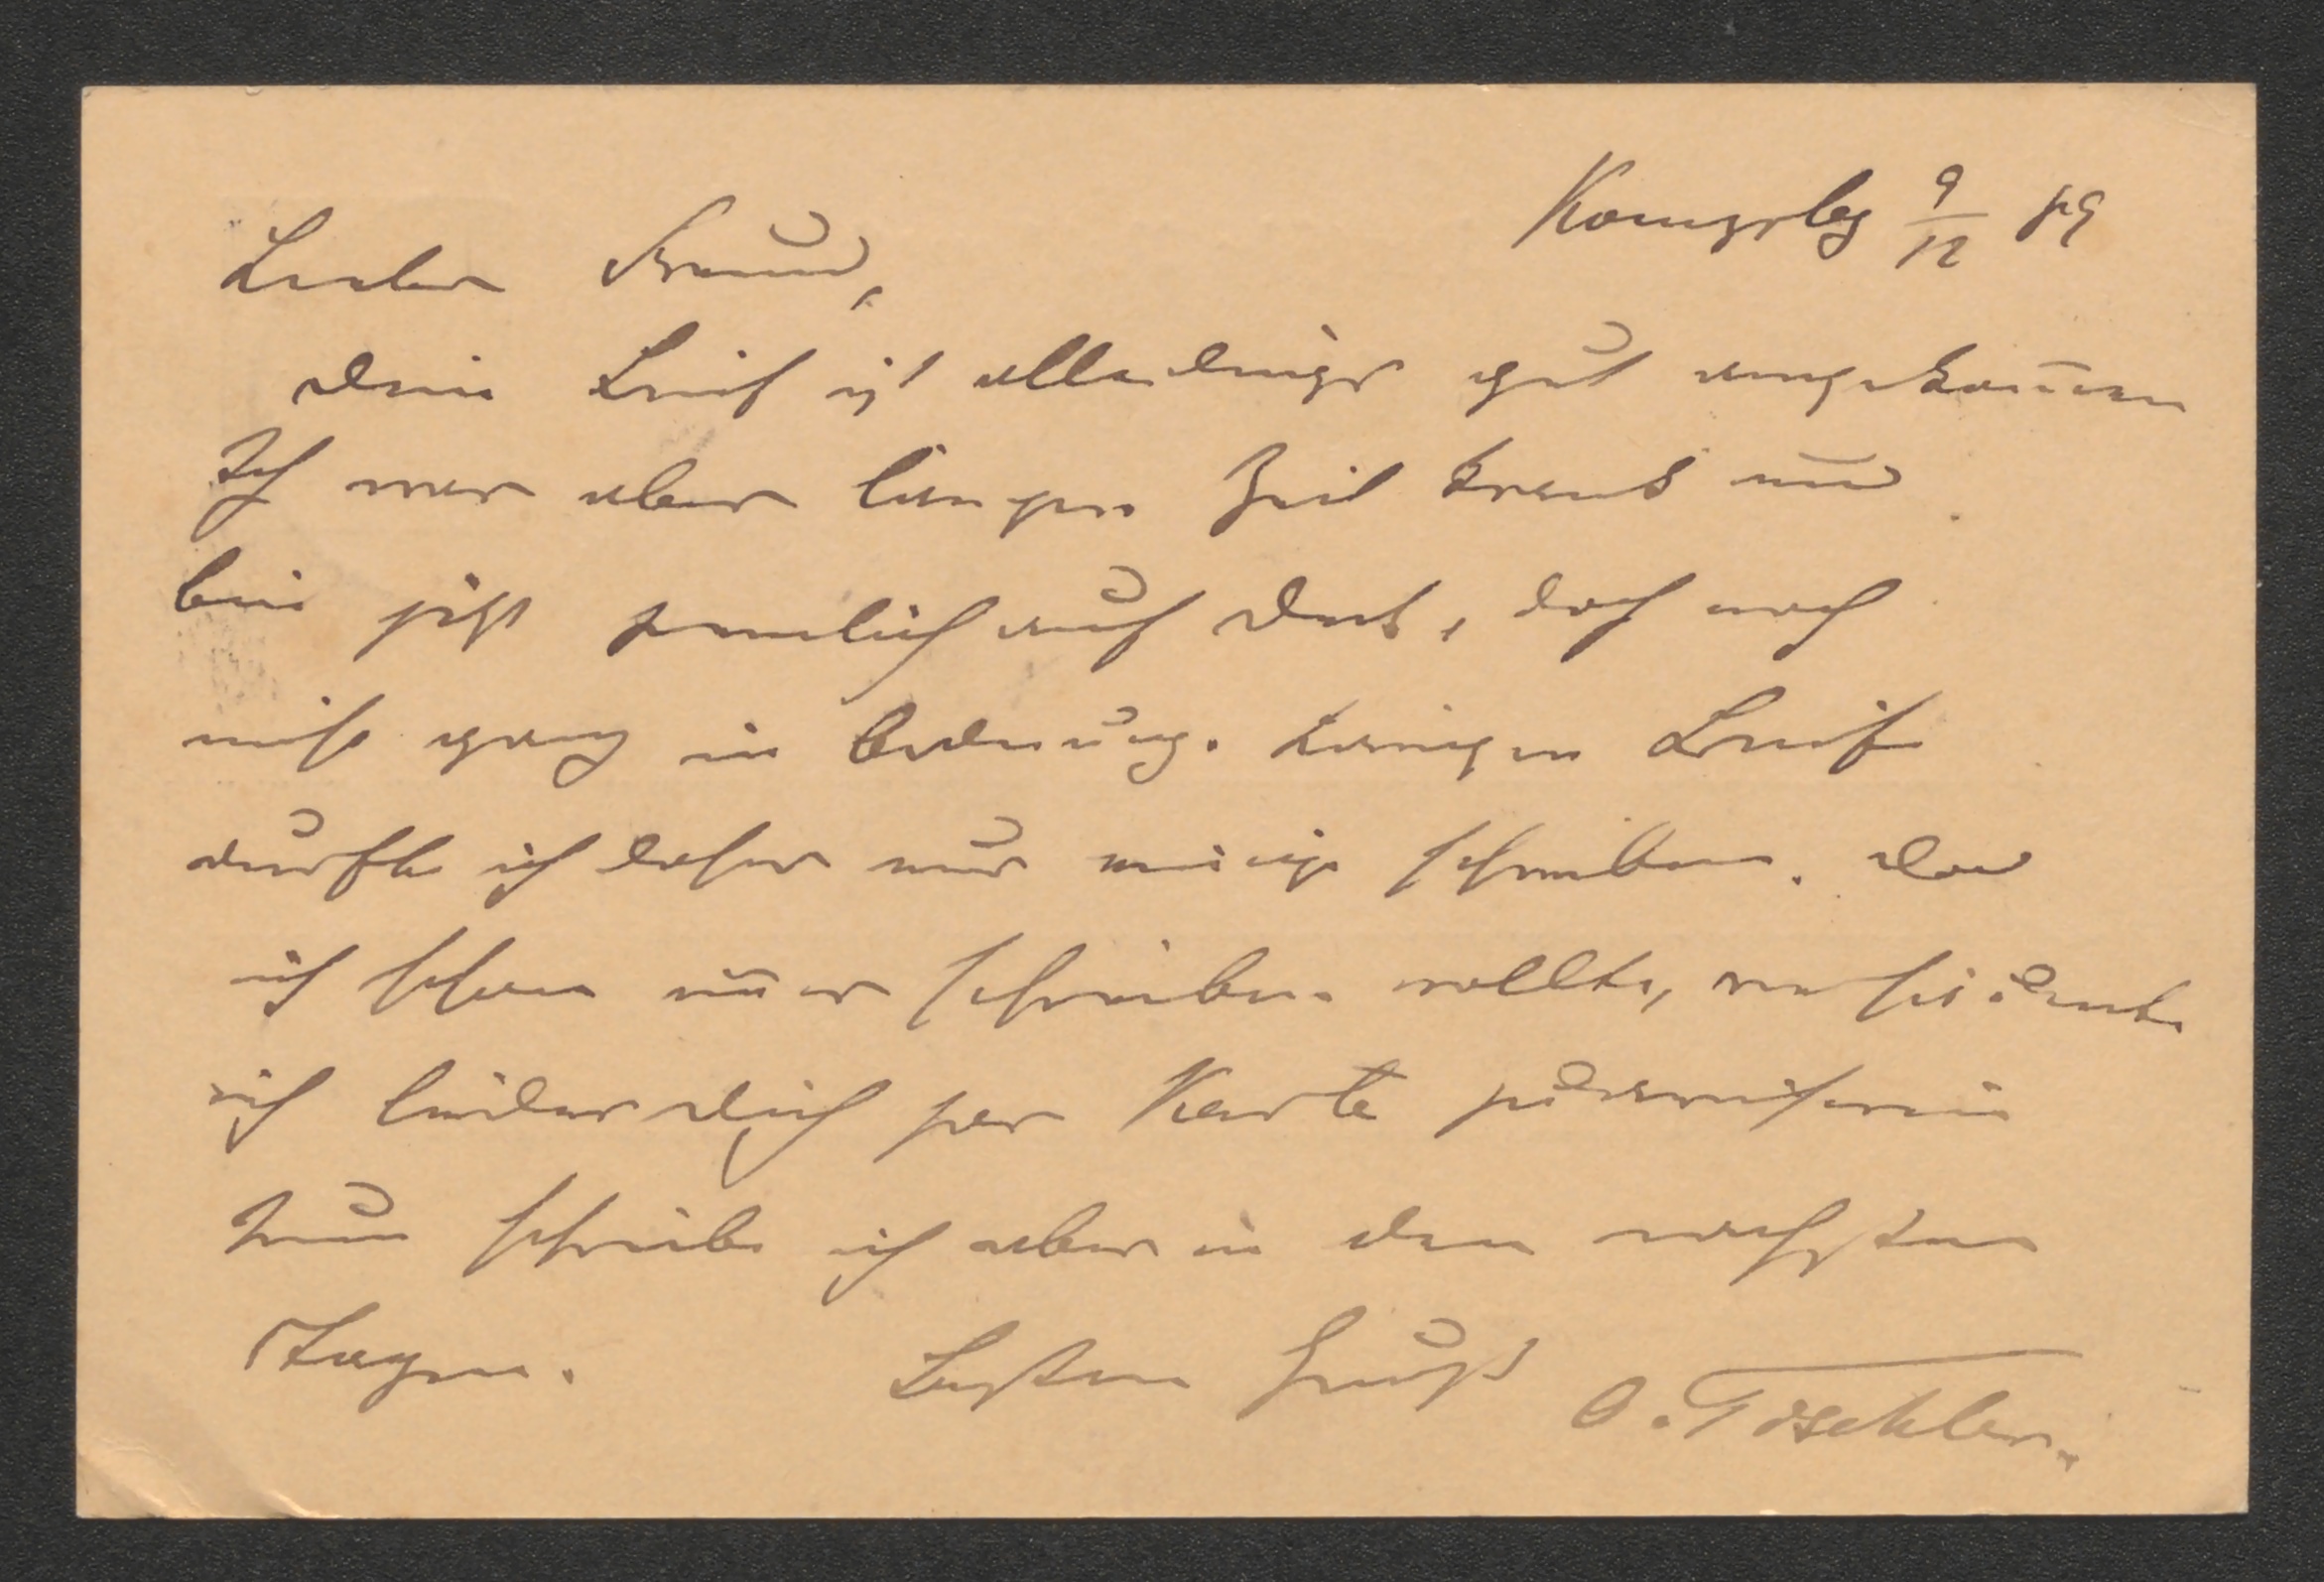 Königsbg 9/12 89
Lieber Freund,
Dein Brief ist allerdings gut angekommen
Ich war aber längere Zeit krank und
bin jetzt ziemlich auf Deck, doch noch
nicht ganz in Ordnung. Einigen Briefe
durfte ich daher nur wenige schreiben. Da
ich schon immer schreiben wollte, versäumte
ich leider Dich per Karte
Nun schreibe ich aber in den nächsten
Tagen. Besten Gruß O. Tischler.